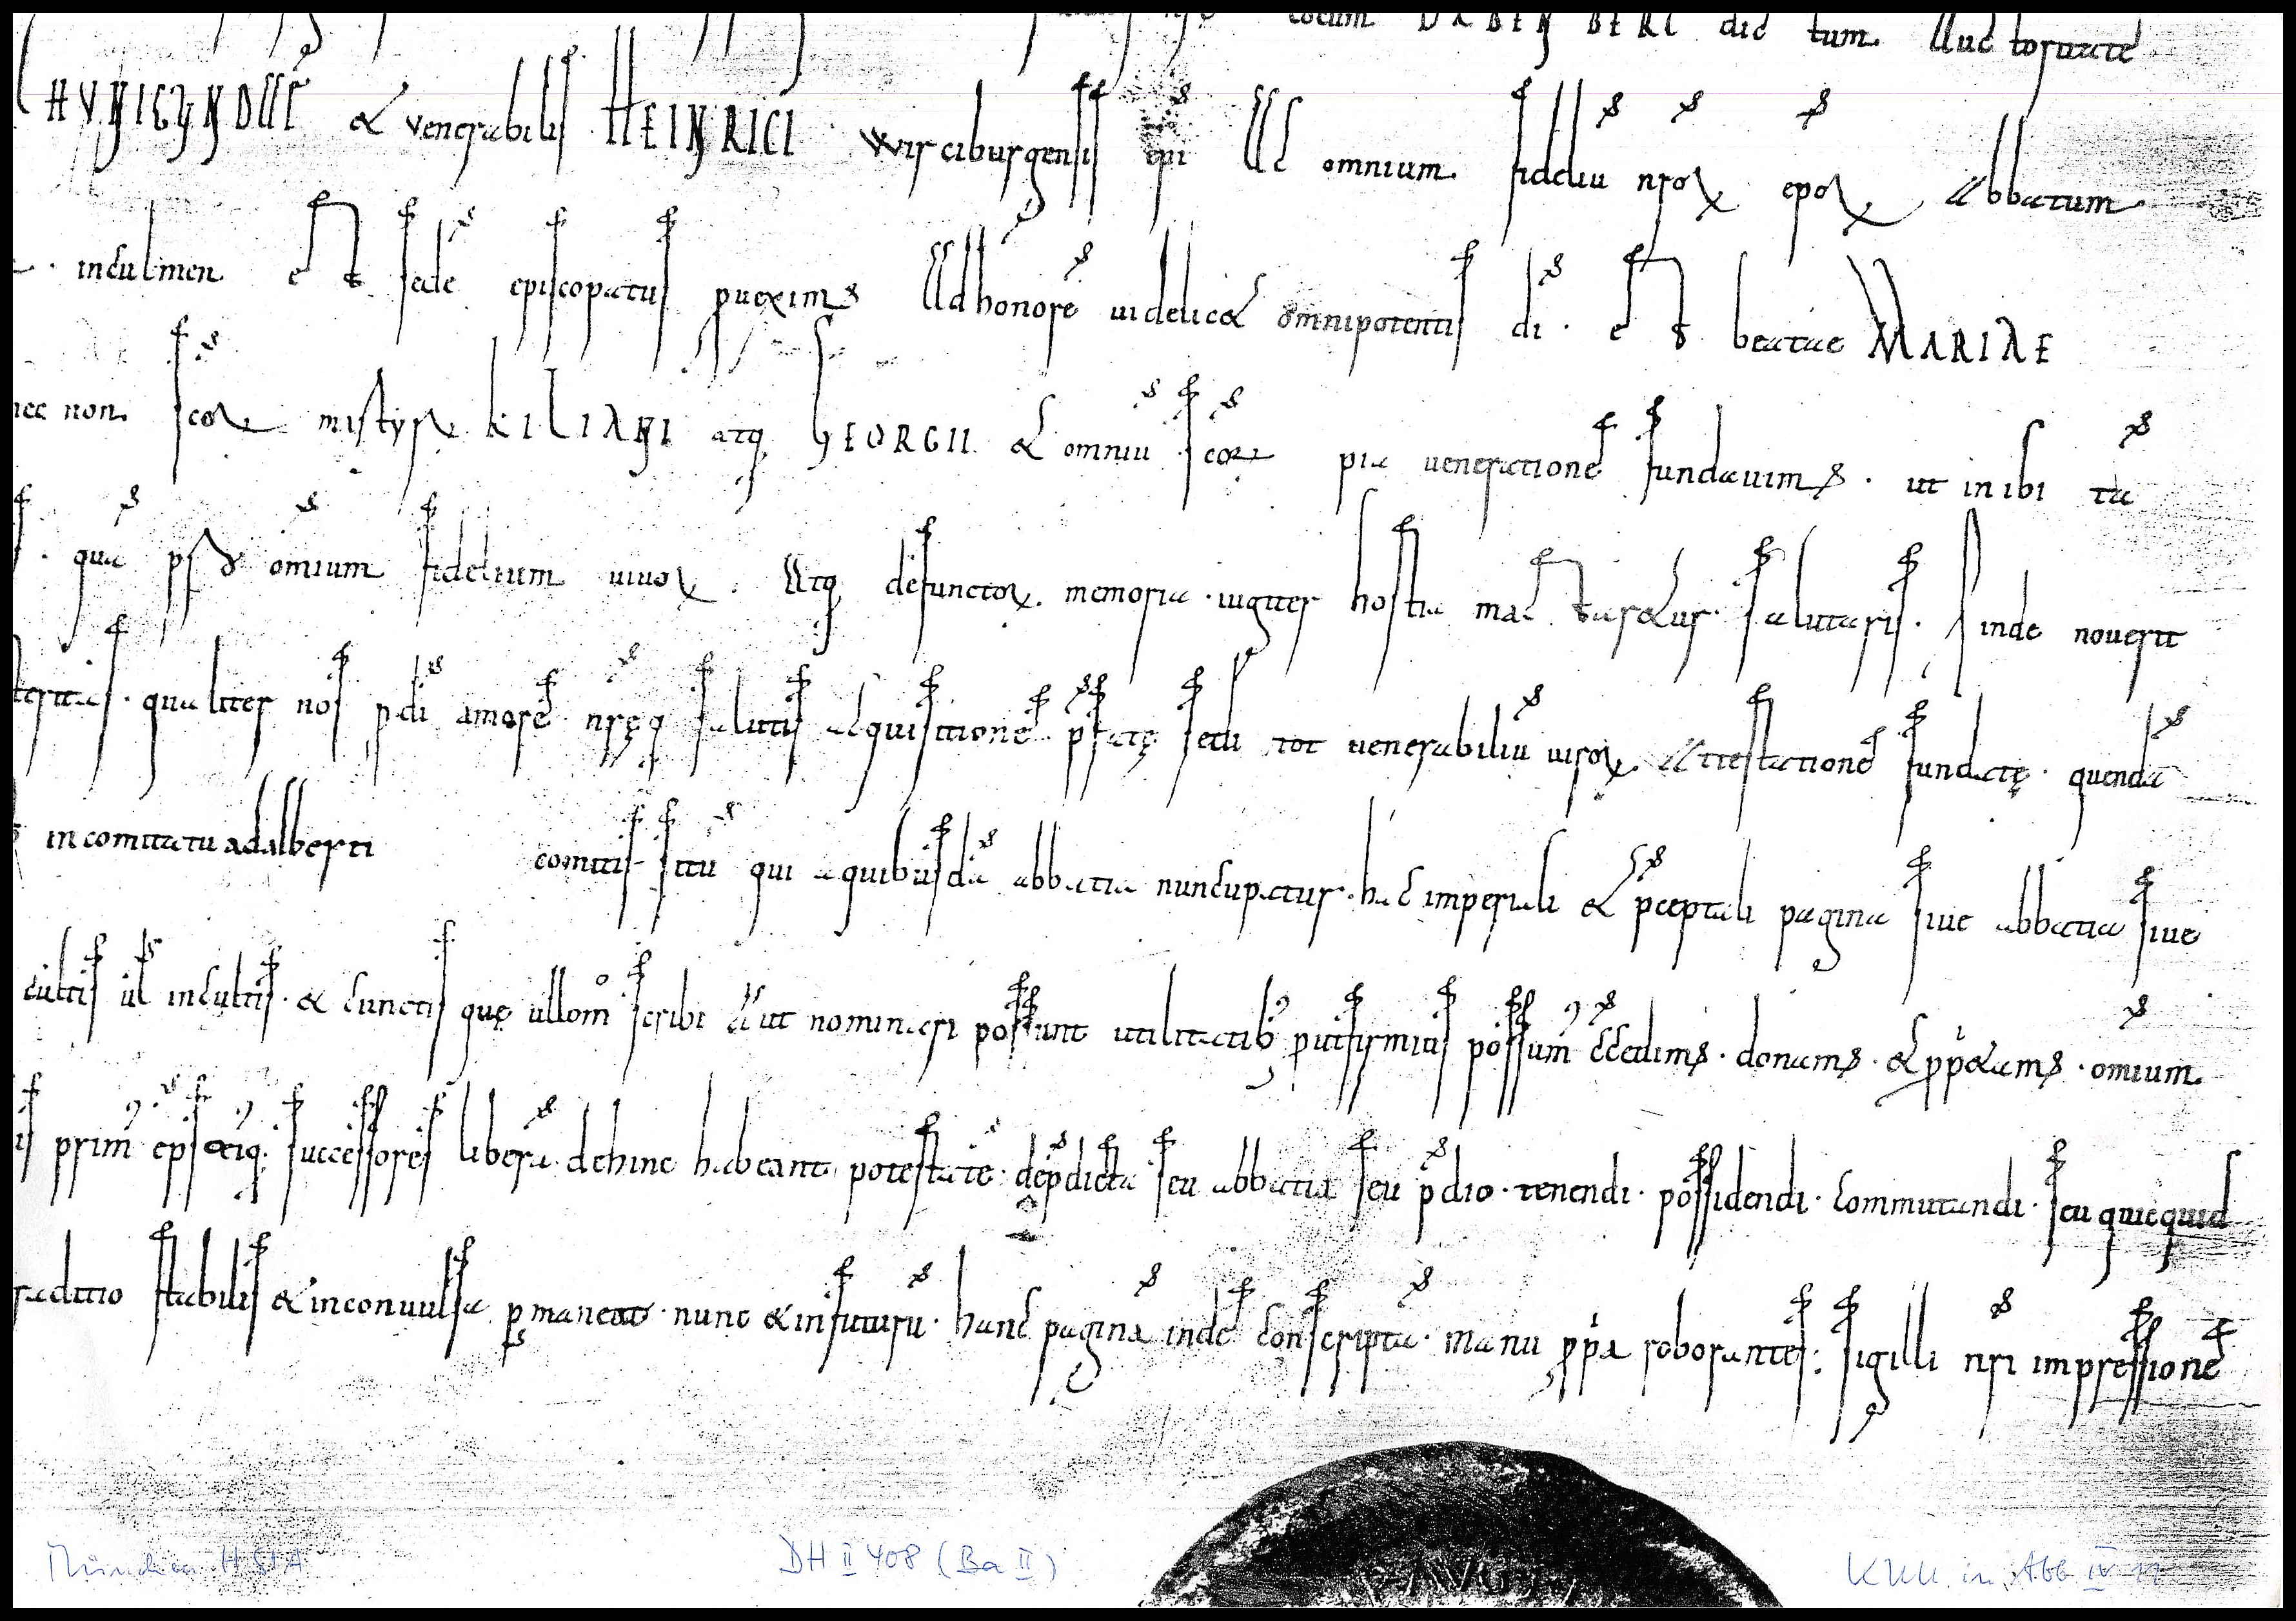 locum BABENBERC dictum. Auctoritate
CHVNIGVNDAE & venerabilis HEINRICI wirciburgensis epi Ac omnium fideliū nrōꝝ epoꝝ Abbatum
inculmen et sedē episcopatus pueximꝰ Ad honorē uidelic& omnipotentis dī · et beatae MARIAE
nec non scōꝝ mrtyrꝝ KILIANI atq; GEORGII & omniū scōꝝ pia ueneratione fundauimꝰ · ut inibi
quā p̄s omīum fidelium uiuoꝝ . Atq; defunctoꝝ. memoria · iugiter hostia mactar&ur salutaris · Sinde nouerit
qualiter nos p dī amorē nrę̄q; salutis adquisitione p̄fatę sedi tot uenerabiliū uiroꝝ Attestatione fundatę · quendā
in comitatu adalberti comitis sitū qui a quibusdā abbatia nuncupatur · hac imperiali & p̄ceptali pagina siue abbatiā siue
cultis ul̄ incultis · & cunctis quę ullom̊ scribi Aut nominari possunt utilitatib; put firmius possum̾ c̄cedimꝰ · donamꝰ · & p̄p&uamꝰ · omīum
prim̾ eps eiq; successores liberā dehinc habeant potestatē de p̄dicta seu abbatia seu p̄dio · tenendi · possidendi · commutandi · seu quicquid
traditio stabilis & inconuulsa p̱maneat · nunc & in futurū · hanc paginā inde conscriptā · manu p̱pa roborantes : sigilli nr̄i impressione
München HStA DH II 408 (Ba II) KUU in Abb IV 11
AVG